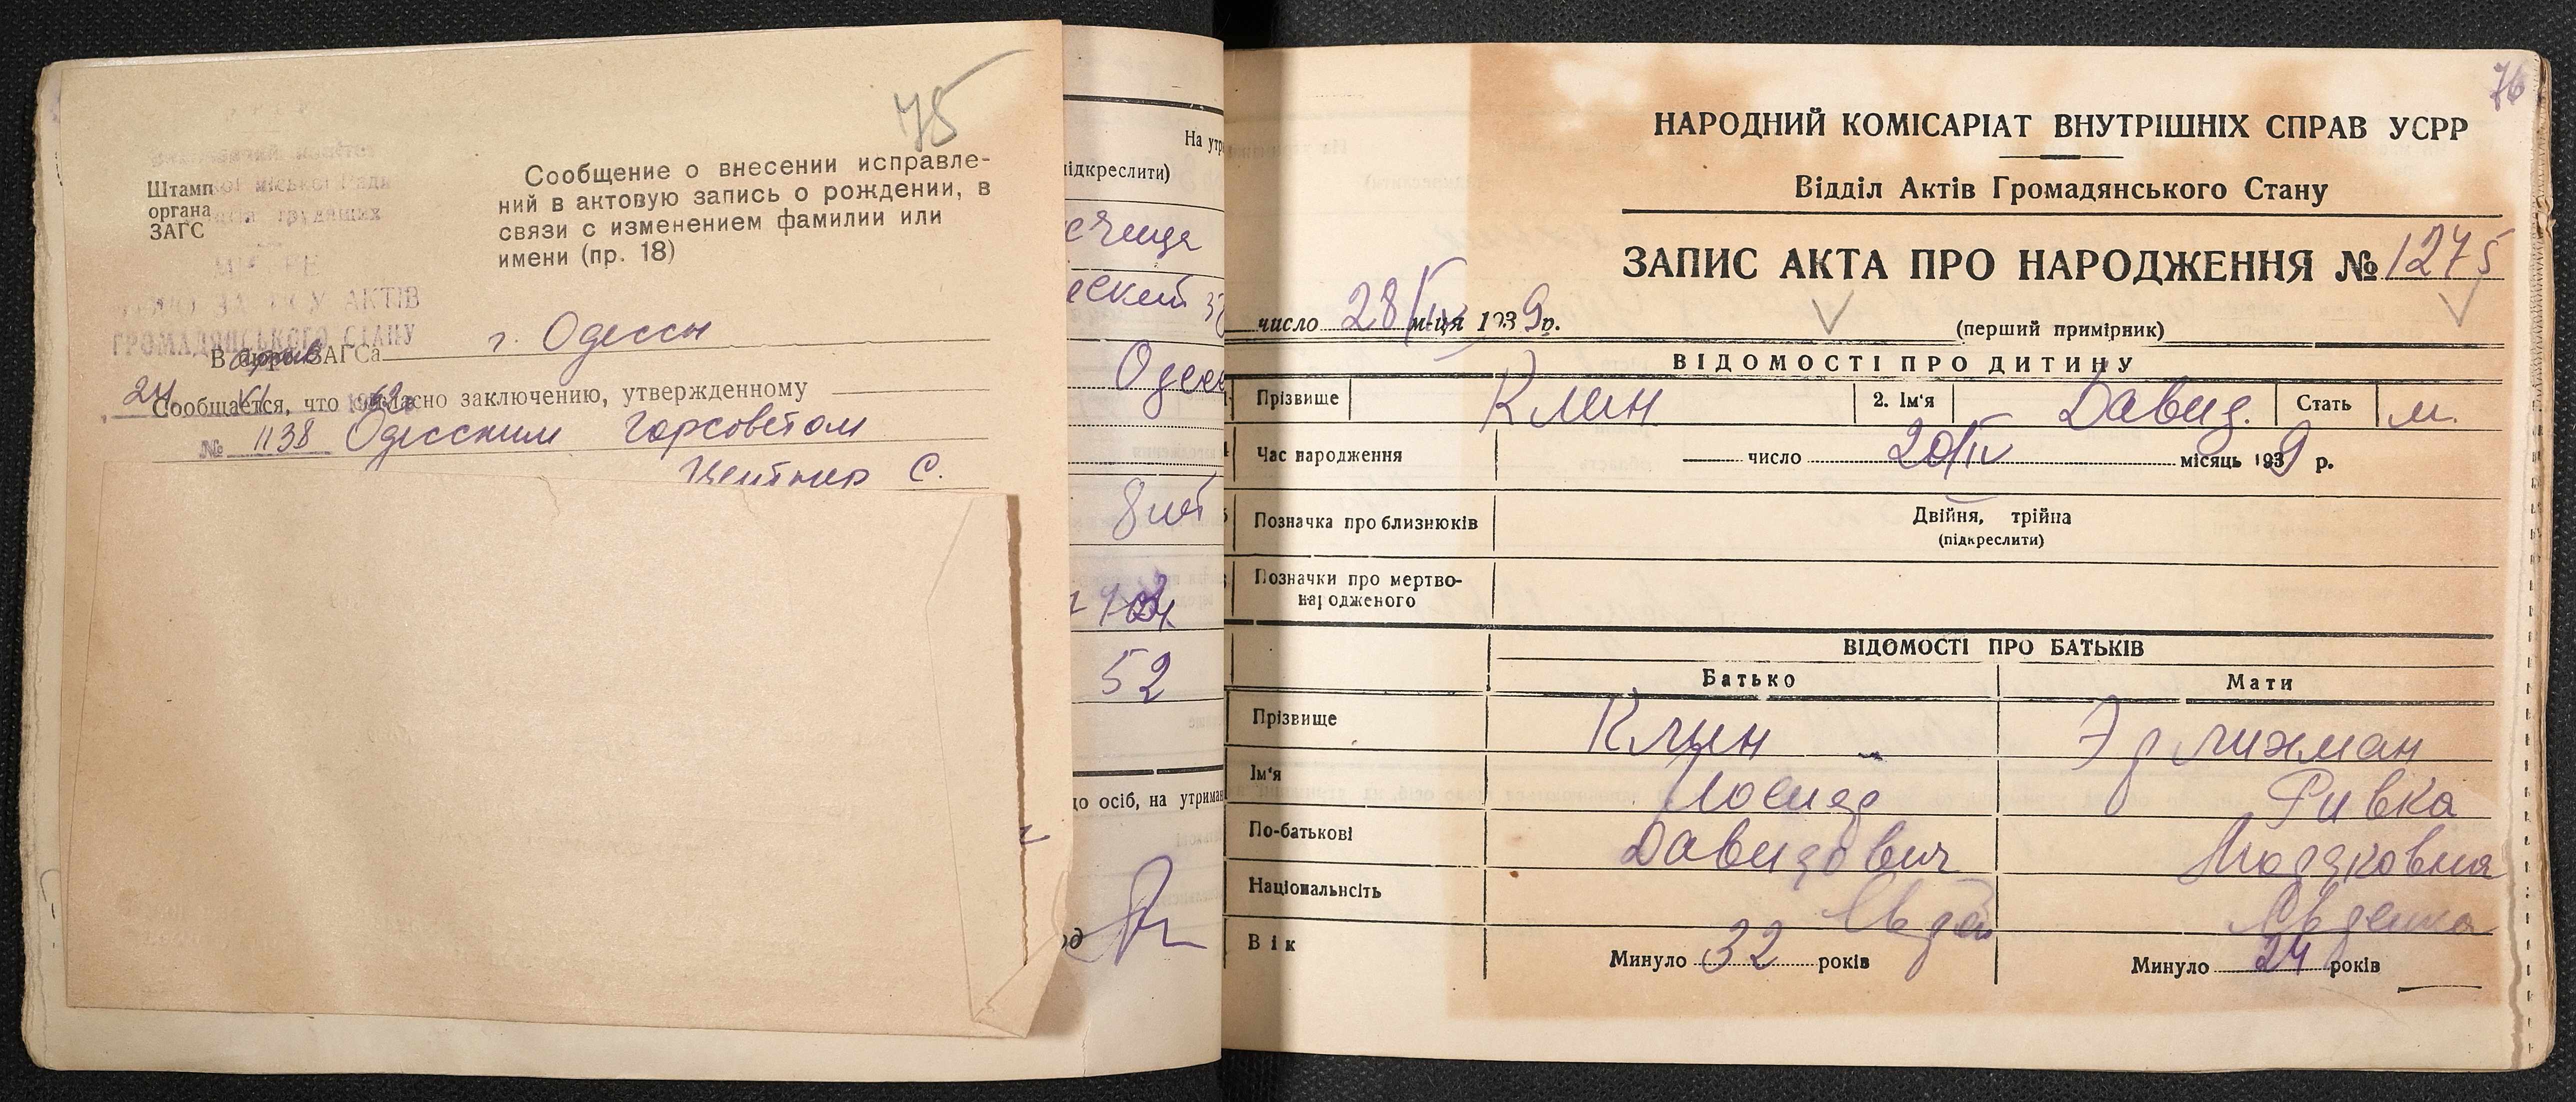 75
Штамп
органа
ЗАГС
Сообщение о внесении исправле-
ний в актовую запись о рождении, в
связи с изменением фамилии или
имени (пр. 18)
АКТІВ
ГРОМАДЯНСЬКОГО СТАНУ
г. Одессы
В ЗАГСа
24 VI
Сообщается, что согласно заключению, утвержденному
№ 1138 Одесским горсоветом
С.
На утр
підкреслити)
Одес
52
до осіб, на утриман
76
НАРОДНИЙ КОМІСАРІАТ ВНУТРІШНІХ СПРАВ УСРР
Відділ Актів Громадянського Стану
ЗАПИС АКТА ПРО НАРОДЖЕННЯ № 1275
число 28/IV м-ця 1939 р.
(перший примірник)
ВІДОМОСТІ ПРО ДИТИНУ
Прізвище Клин 2. Ім'я Давид. Стать м.
Час народження число 20/IV місяць 1939 р.
Позначка про близнюків Двійня, трійна
(підкреслити)
Позначки про мертво-
народженого
ВІДОМОСТІ ПРО БАТЬКІВ
Батько Мати
Прізвище Клин Эрлихман
Ім'я Ривка
По-батькові Давидович
Національнсіть Єврей Єврейка
Вік Минуло 32 років Минуло 24 років